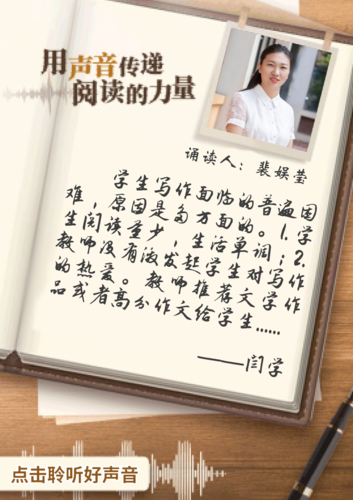 用声音传递
阅读的力量
诵读人：裴娱莹
学生写作面临的普遍困
难，原因是多方面的。1.学
生阅读量少，生活单调；2.
教师没有激发起学生对写作
的热爱。教师推荐文学作
品或者高分作文给学生……
——闫学
点击聆听好声音